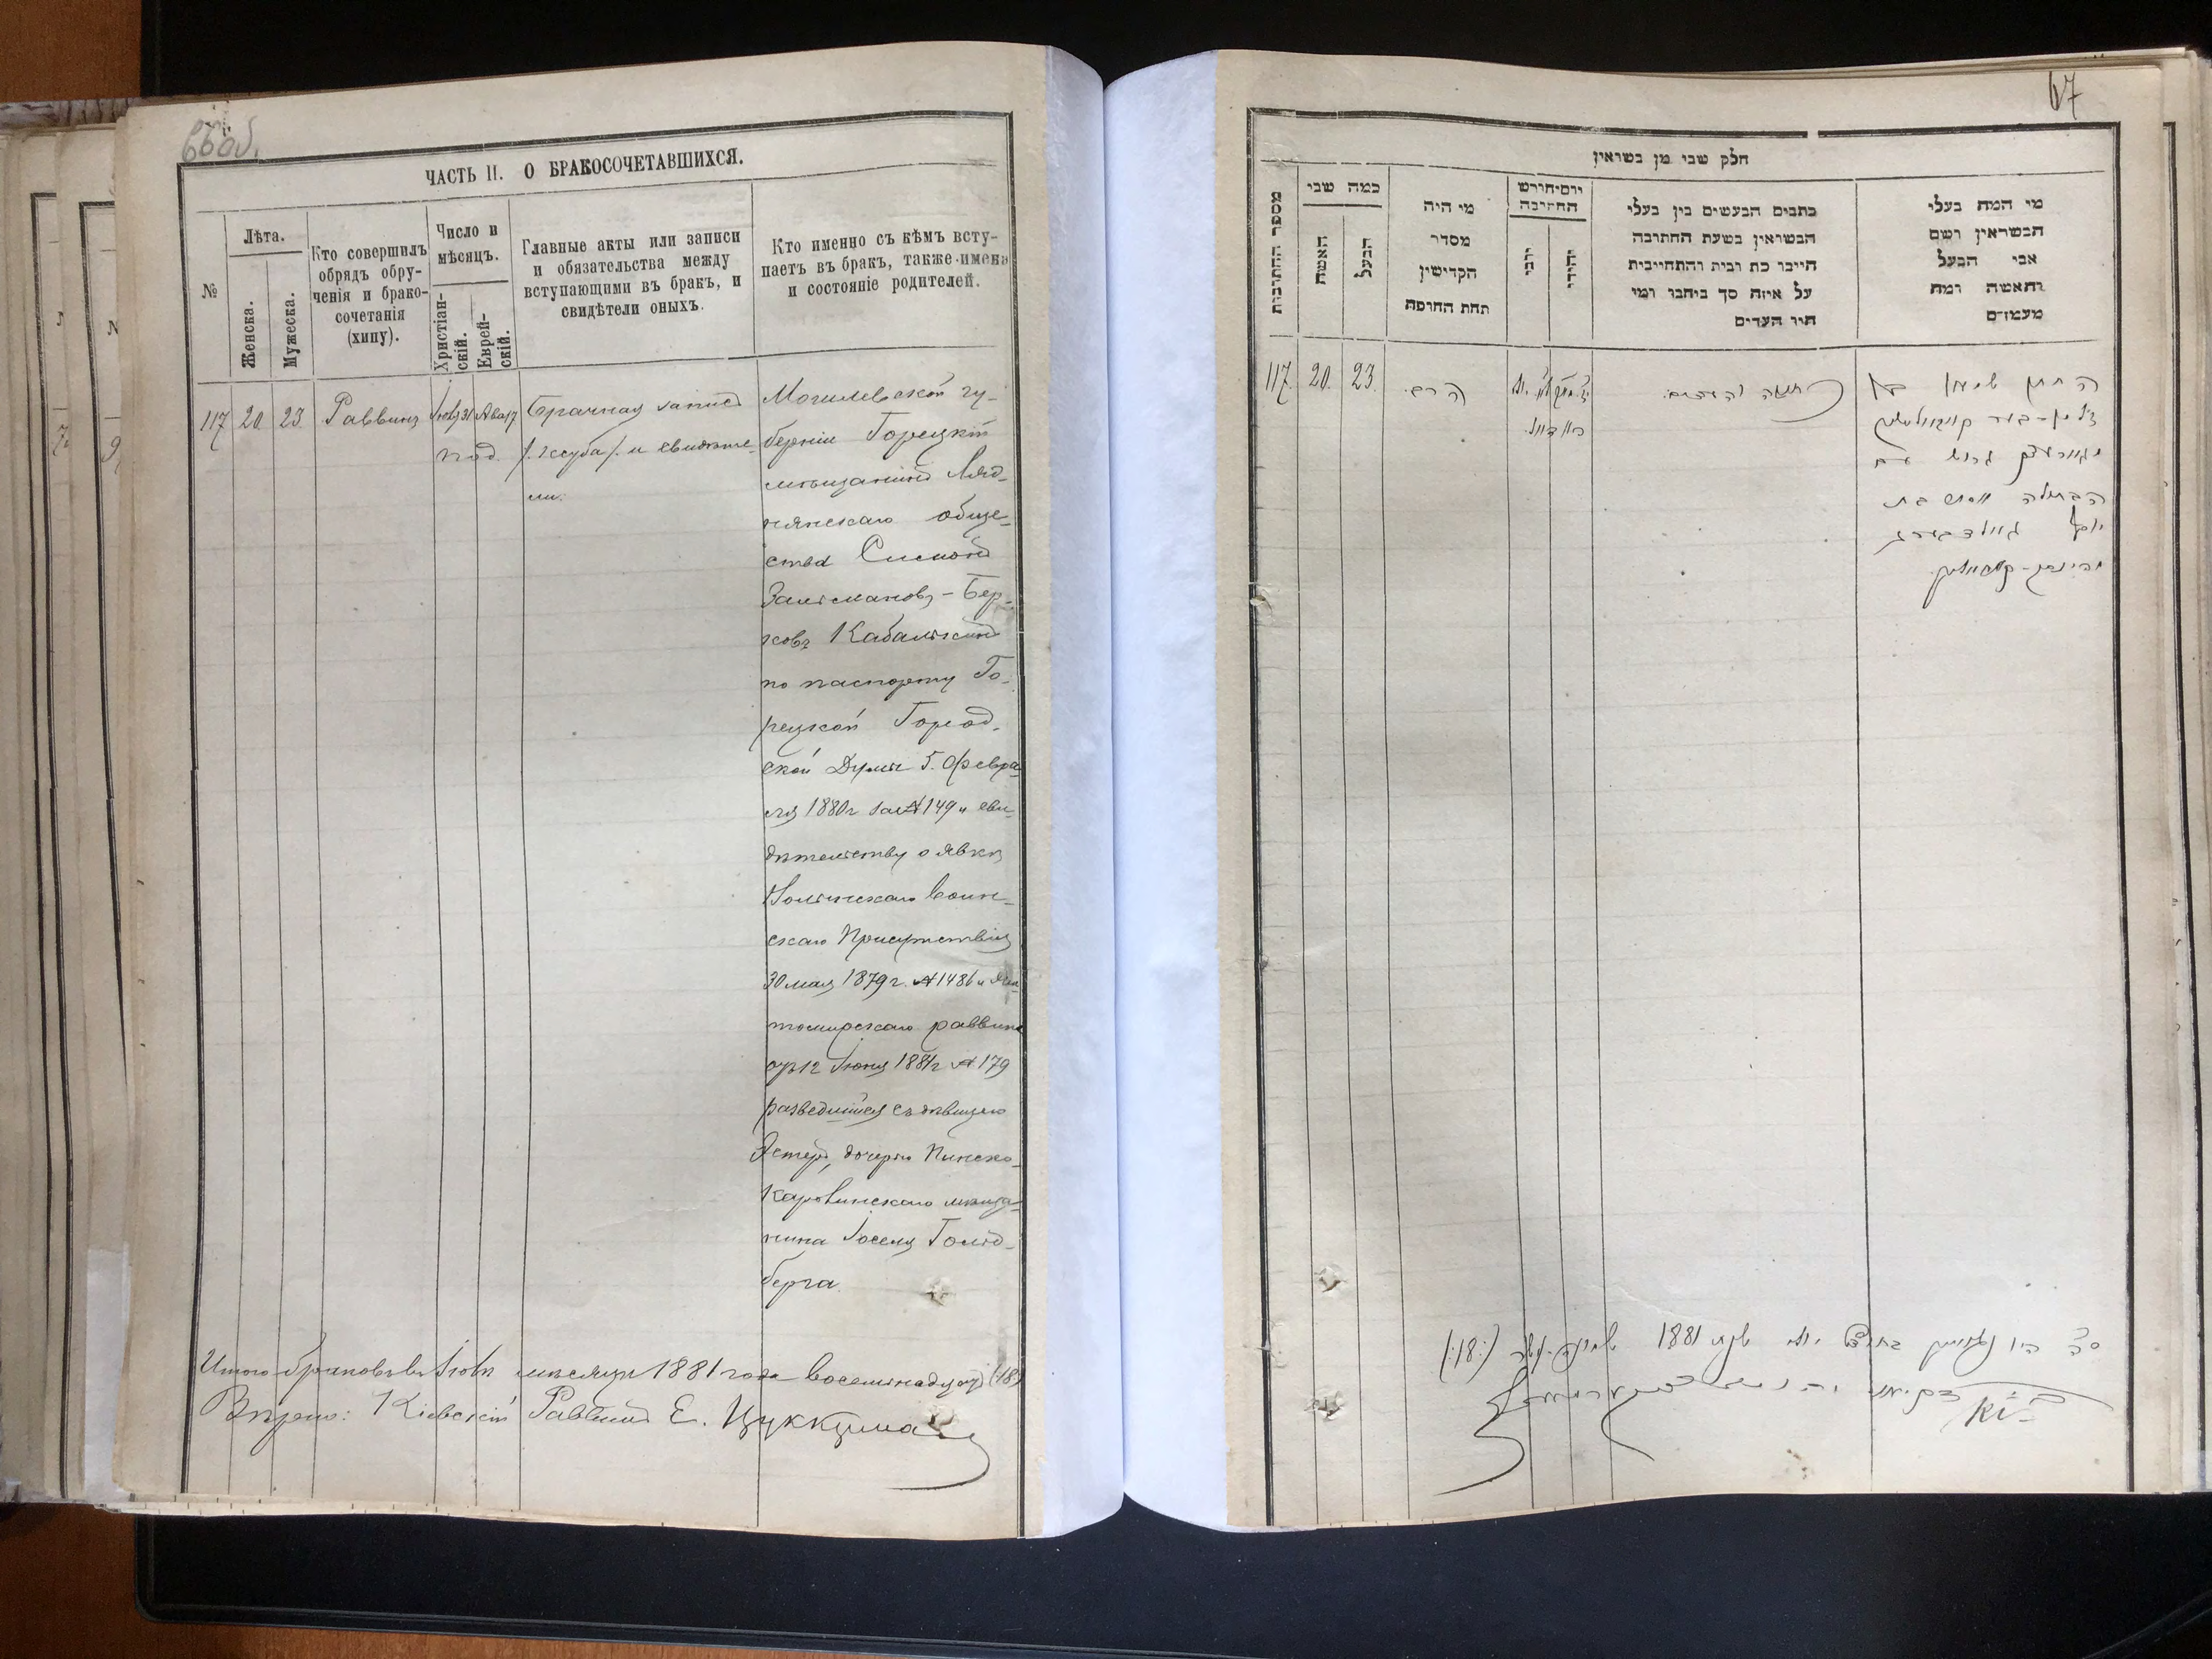 66об.
ЧАСТЬ II. О БРАКОСОЧЕТАВШИХСЯ.
№
Лѣта.
Женска.
Мужеска.
Кто совершилъ
обрядъ обру-
ченія и брако-
сочетанія
(хипу).
Число и
мѣсяцъ.
Христіан-
скій.
Еврей-
скій.
Главные акты или записи
и обязательства между
вступающими въ бракъ, и
свидѣтели оныхъ.
Кто именно съ кѣмъ всту-
паетъ въ бракъ, также имена
и состояніе родителей.
117
20
23
Раввинъ
Іюля 31
Ава 17
Брачная запись
/. ксуба /. и свидѣте-
ли.
Могилевской гу-
берніи Горецкій
мѣщанинъ Ляд-
нянскаго обще-
ства Симонъ
Залмановъ-Бер-
ковъ Кабалькинъ
по паспорту Го-
рецкой Город-
ской Думы 5. Февра-
ля 1880г за № 149 и сви-
дѣтельству о явкѣ
Волынскаго Воин-
скаго Присутствія
30 мая 1879 г. № 1486 и Жи-
томирскаго раввина
отъ 12 Іюня 1881г № 179
разведшійся съ дѣвицею
Эстеръ, дочерью Пинско-
Каровинскаго мѣща-
нина Іоселя Гольд-
берга.
Итого браковъ въ Іюлѣ мѣсяцѣ 1881 года восемнадцать (:18:)
Вѣрно: Кіевскій Раввинъ Е. Цуккерма
67
חלק שני מן נשואין
מספר החתונות
כמה שני
האשה
הבעל
מי היה
מסדר
הקדישין
תחת החופה
יום וחורש
החתונה
נוצרי
יהודי
כתבים הנעשים בין בעלי
הנשואין בשעת החתונה
חייבו כת ובית והתחייבית
על איזה סך ביחבו ומי
היו העדים
מי המה בעלי
הנשואין ושם
אבי הבעל
והאשה ומה
מעמדם
117.
20.
23.
הרב.
כתובה והעדים.
החתן שימען בן
זלמן-בער קאבאלקין
מגורעצק גרוש עם
הבתולה אסתר בת
יוסף גאלדבערג
סה״כ היו נשואין בחודש יולי שנת 1881 שמונה עשר (:18:)